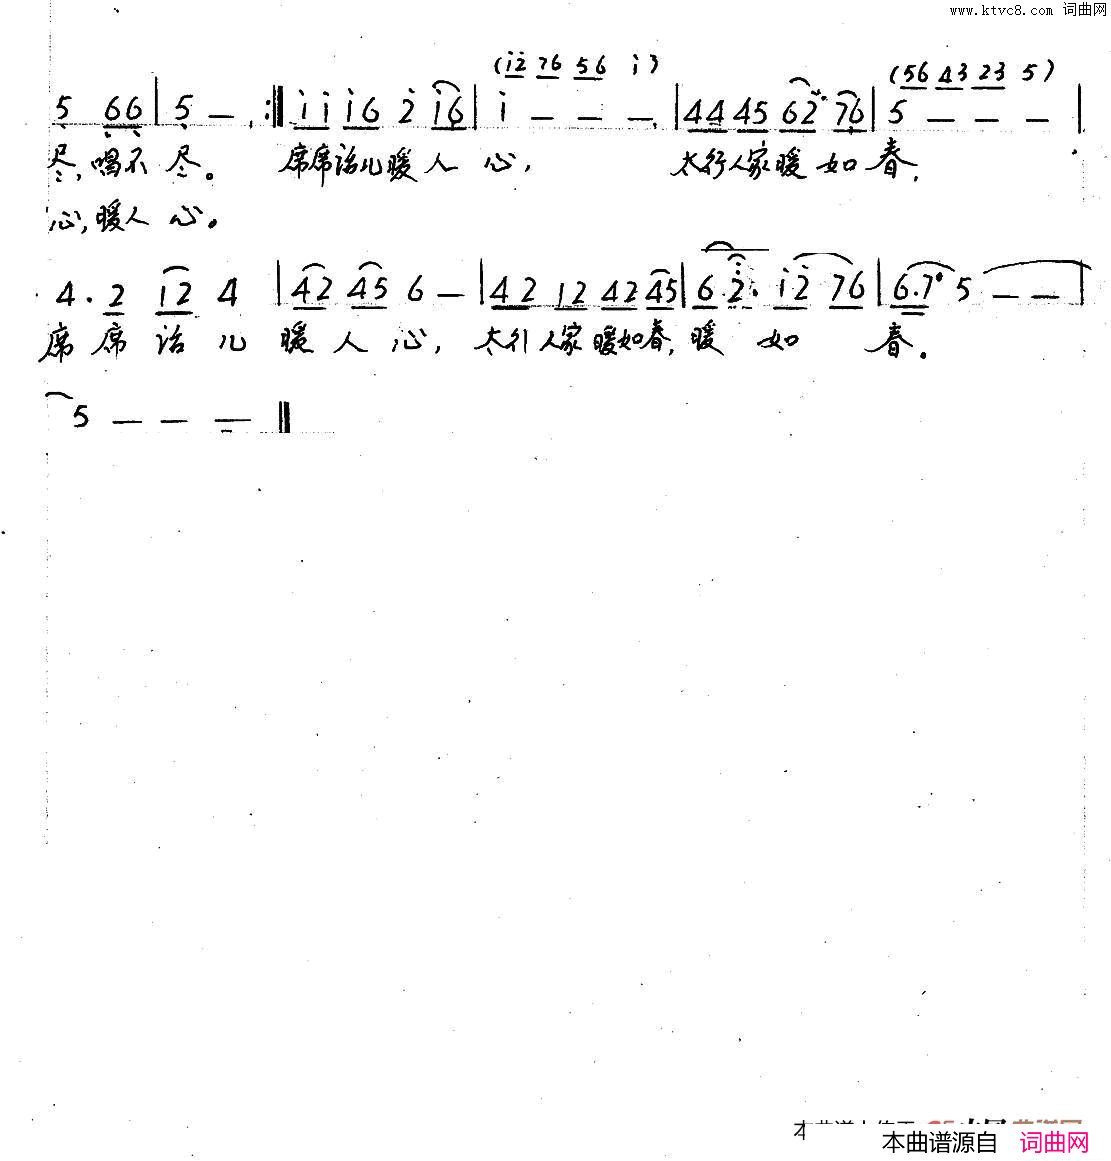 www.ktvc8.com 词曲网
(i̇2̇ 76 56 i̇) (56 43 23 5)
5̣ 6̣6̣ | 5̣ — :‖ i̇ i̇ i̇6 2̇ i̇6 | i̇ — — — | 44 45 62̇· 76 | 5 — — — |
尽,唱不 尽。 席席话儿暖人 心, 太行人家暖如春,
心,暖人 心。
4·2 12 4 | 42 45 6 — | 42 12 42 45 | 6 2̇· i̇2̇ 76 | 6·7 5 — — |
席 席 话 儿 暖 人 心, 太行人家暖如春,暖 如 春。
5 — — — ‖
本曲谱源自 词曲网